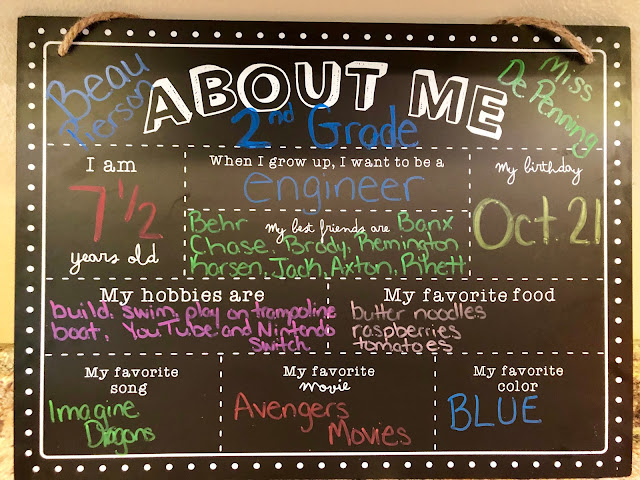 Beau
Pierson
ABOUT ME
Miss
DePenning
2nd Grade
I am
7 1/2
years old
When I grow up, I want to be a
engineer
My birthday
Oct. 21
Behr My best friends are Banx
Chase, Brody, Remington
Karsen, Jack, Axton, Rhett
My hobbies are
build, swim, play on trampoline
boat, YouTube and Nintendo
Switch
My favorite food
butter noodles
raspberries
tomatoes
My favorite
song
Imagine
Dragons
My favorite
movie
Avengers
Movies
My favorite
color
BLUE